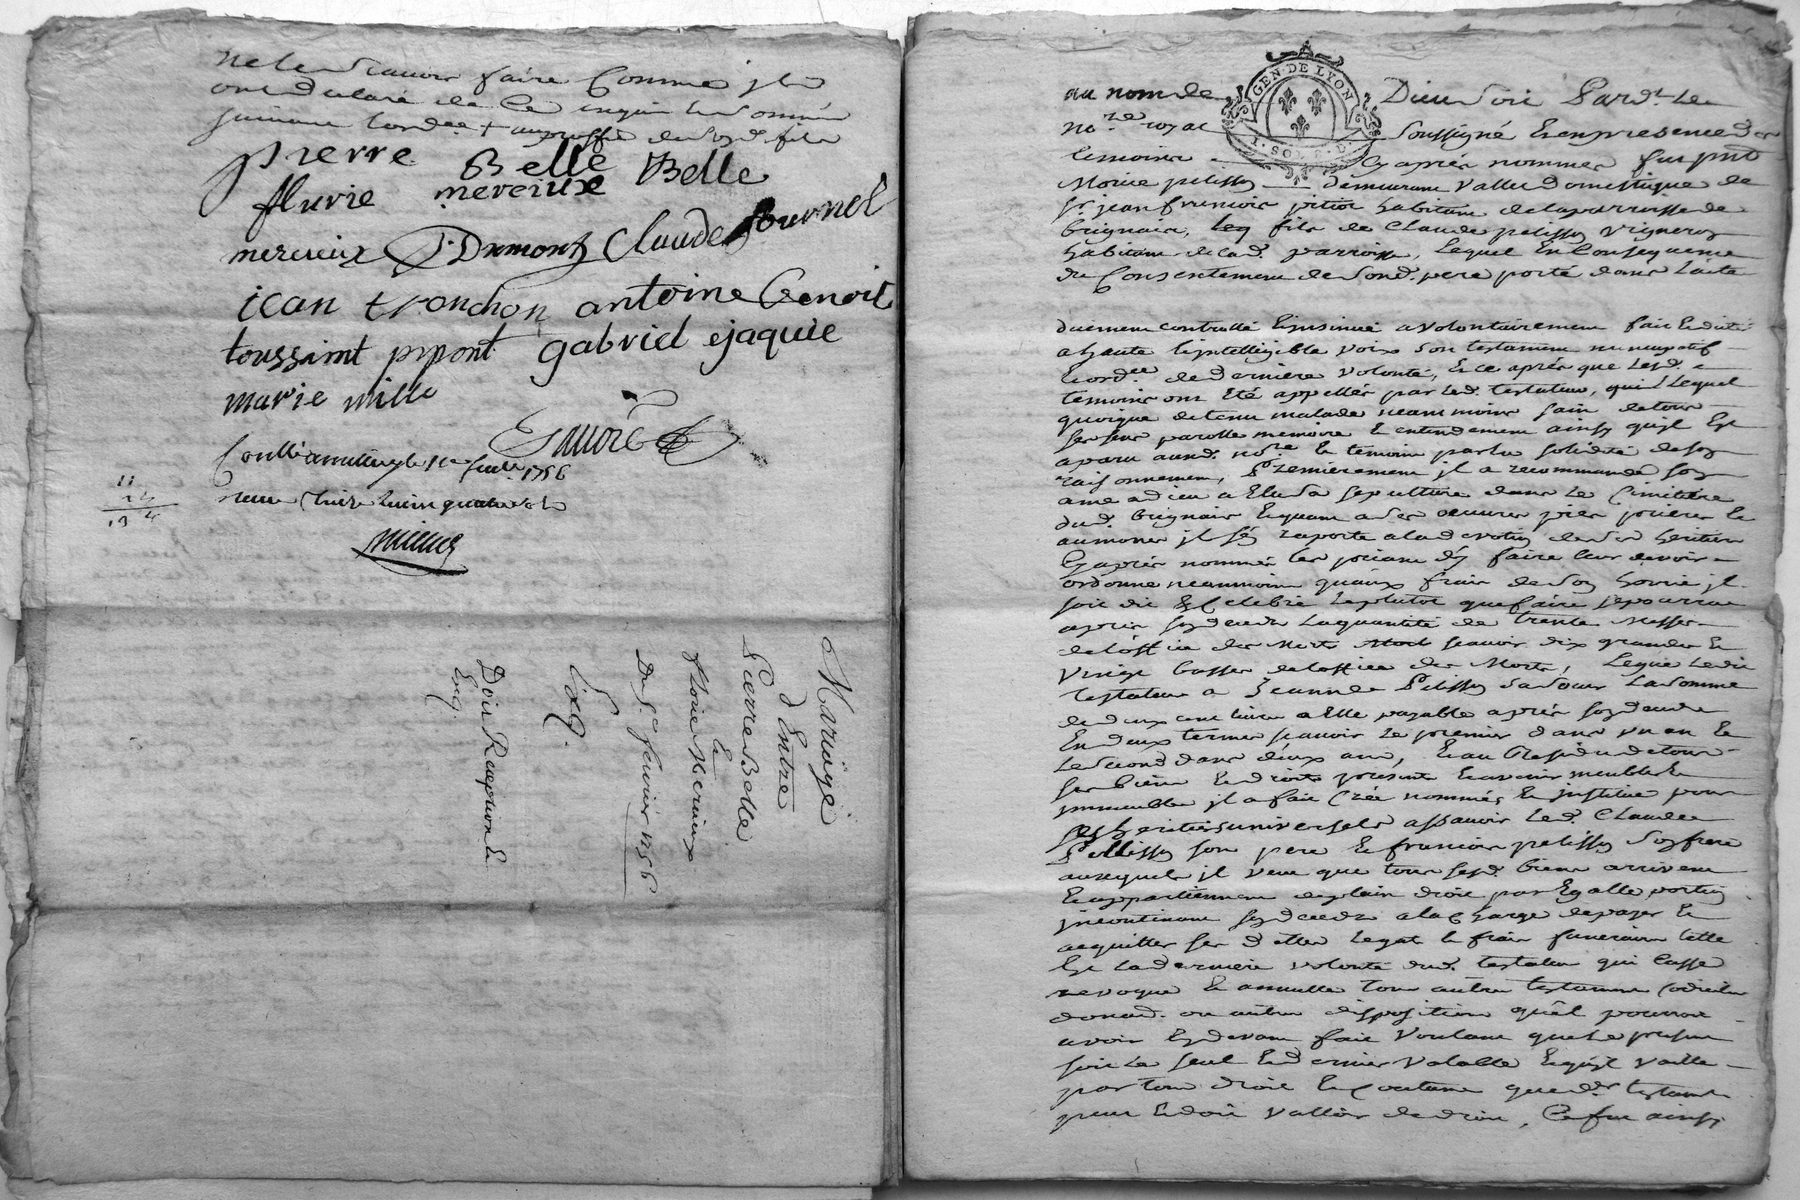 ne le scavoir faire comme ils
ont declaré de ce enquis et sommés
suivant lord.ce + du sd. fils
pierre Belle Belle
flurie mercieux
mercieux Dumont Claude fournel
jean tronchon antoine Benoit
toussaint pipont gabriel ejaquie
marie mille
Controllé le fevr. 1756
neuf livres quatre
11
19 4
Mariage
d'Entre
Pierre Belle
Et
florie Mercieux
Du 5.e fevrier 1756
Exg.
Dois Reception et
Exg.
GEN. DE LYON
I. SO D.
au nom de Dieu soit Pard.t le
no.re royal soussigné et en presence des
temoins cy apres nommés fut pnt
Morice pelissy demeurant vallet domestique de
sr. jean habitant de la parroisse de
brignais, fils de Claude pelissy vigneron
habitant de lad. parroisse, lequel en consequence
du consentement de sond. pere porté dans l'acte
duement controllé et insinué a volontairement fait et dicté
a haute et intelligible voix son testament nuncupatif
et ord.ce de derniere volonté, et ce apres que lesd.
temoins ont été appellés par led. testateur, lequel
quoique detenu malade neanmoins sain de tous
ses sens parolle memoire et entendement ainsy qu'il est
aparu aud. no.re et temoins par la solidité de son
raisonnement, Premierement il a recommandé son
ame a dieu a Elu sa sepulture dans le Cimitière
dud. brignais et quant a ses oeuvres pies prieres et
aumones il s'en raporte a la devotion de ses heritiers
cy apres nommés les priant d'en faire leur devoir
ordonne neanmoins quaux frais de son hoirie il
soit dit et celebré le plutot que faire se pourra
apres son deces la quantité de trente Messes
de l'office des Morts scavoir dix grandes et
vingt basses de l'office des Morts, Legue ledit
testateur a Jeanne Pelissy sa soeur la somme
de deux cent livres a Elle payable apres son deces
En deux termes scavoir le premier dans un an et
le second dans deux ans, Et au Residu de tous
ses biens et droits presents et avenir meubles et
immeubles il a fait créé nommés et institué pour
ses heritiers universels assavoir led. Claude
Pellissy son pere et francois pelissy son frere
auxquels il veut que tous sesd. biens arrivent
et appartiennent de plain droit par Egalle portion
incontinent son deces a la charge de payer et
acquitter ses dettes legat et frais funeraires telle
Est la derniere volonté dud. testateur qui casse
revoque et annulle tous autres testament codicile
donad. ou autres disposition qu'il pourroit
avoir cy devant fait voulant que le present
soit le seul et dernier valable et qu'il vaille
par tous droit et coutume que d. testament
peut et doit valloir de droit, Ce fut ainsi